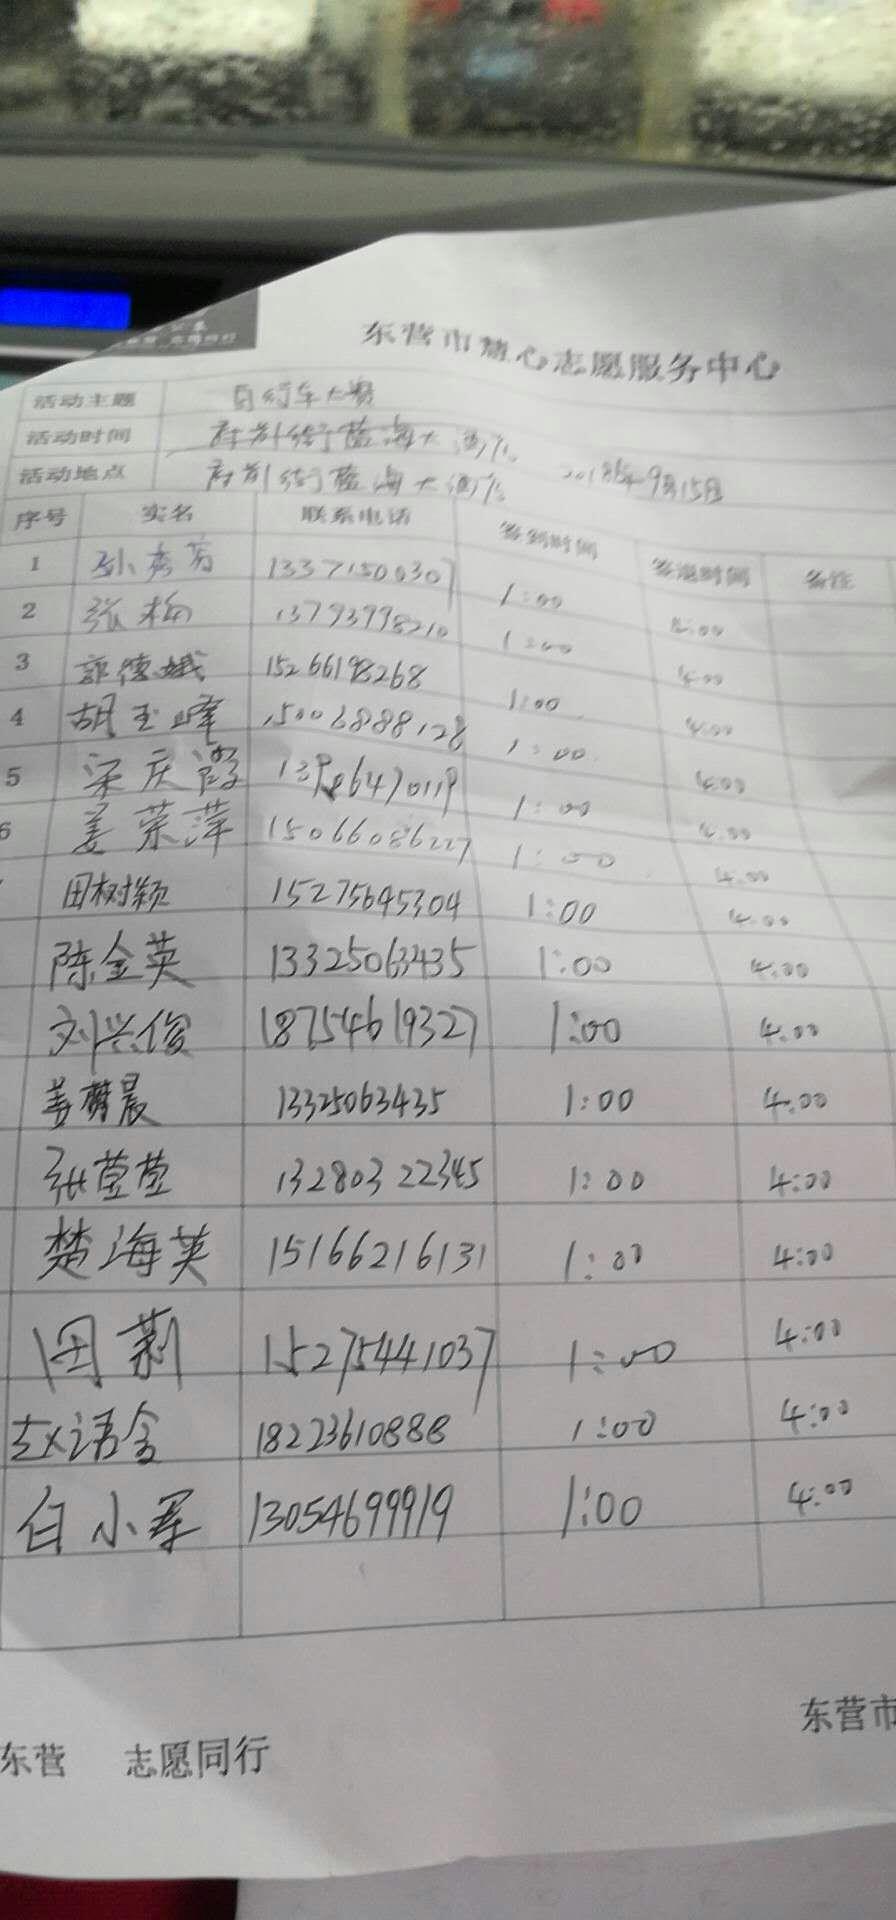 东营市慈心志愿服务中心
活动主题 自行车大赛
活动时间 府前街蓝海大酒店 2018年9月15日
活动地点 府前街蓝海大酒店
序号 实名 联系电话 签到时间 签退时间 备注
1 孙秀芳 13371500307 1:00 4:00
2 张梅 13793998210 1:00 4:00
3 郭德娥 15266198268 1:00 4:00
4 胡玉峰 15006888128 1:00 4:00
5 宋庆霞 1:00 4:00
6 姜荣萍 15066086227 1:00 4:00
田树颖 15275645304 1:00 4:00
陈金英 13325063435 1:00 4:00
刘兴俊 18754619327 1:00 4:00
姜 晨 13325063435 1:00 4:00
张莹莹 13280322345 1:00 4:00
楚海英 15166216131 1:00 4:00
田莉 15275441037 1:00 4:00
赵语含 18223610888 1:00 4:00
白小军 13054699919 1:00 4:00
东营市
东营 志愿同行